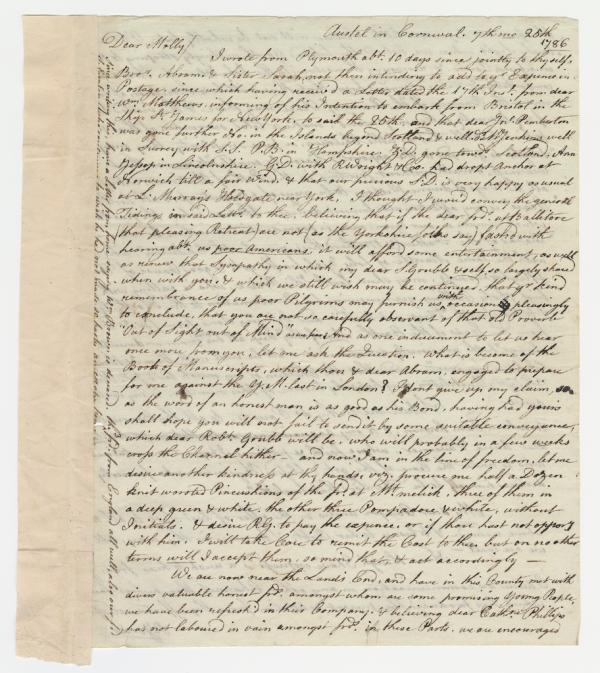 Austel in Cornwal. 7th mo 25th
1786
Dear Molly
I wrote from Plymouth abt. 10 days since jointly to thyself,
Bror. Abram & Sister Sarah, not then intending to add to yr. Expence in
Postage, since which having received a Letter dated the 17th Inst. from dear
Wm. Matthews, informing of his Intention to embark from Bristol in the
Ship St. James for New York, to sail the 25th, and that dear Jno. Pemberton
was gone further No. in the Islands beyond Scotland & well;
in Surrey with P.B. in Hampshire. Z.D. gone towds. Scotland, Ann
Jessop in Lincolnshire. G.D. with R. Wright & Co. had dropt Anchor at
Norwich till a fair Wind. & that our precious S.D. is very happy as usual
at L. Murray's Holdgate near York, I thought I wou'd convey the general
Tidings in said Lettr. to thee, believing that if the dear frds. at
that pleasing Retreat are not (as the Yorkshire folks say) fash'd with
hearing abt. us poor Americans, it will afford some entertainment, as well
as renew that Sympathy in which my dear S. Grubb & self so largely shared
when with you, & which we still wish may be continued, that yr. kind
remembrance of us poor Pilgrims may furnish us with occasion pleasingly
to conclude, that you are not so carefully observant of that old Proverb
"Out of Sight out of Mind" And as one inducement to let us hear
once more from you, let me ask the Question. What is become of the
Book of Manuscripts, which thou & dear Abram, engaged to prepare
for me against the Y.M. last in London? I dont give up my claim, so
as the word of an honest man is as good as his Bond, having had yours
shall hope you will not fail to send it by some suitable conveyance,
which dear Robt. Grubb will be, who will probably in a few weeks
cross the Channel hither — and now I am in the line of freedom, let me
desire another kindness at thy hands, viz. procure me half a Dozen
knit worsted Pincushions of the frds. at , three of them in
a deep green & white, the other three Pompadore & white, without
Initials. & desire R.G. to pay the expence, or if thou hast not opporty
with him, I will take Care to remit the Cost to thee, but on no other
terms will I accept them, so mind that, & act accordingly —
We are now near the Lands End, and have in this County met with
divers valuable honest frds. amongst whom are some promising Young People,
we have been refresh'd in their Company, & believing dear Cathe. Phillips
has not laboured in vain amongst frds. in these Parts. we are encouraged